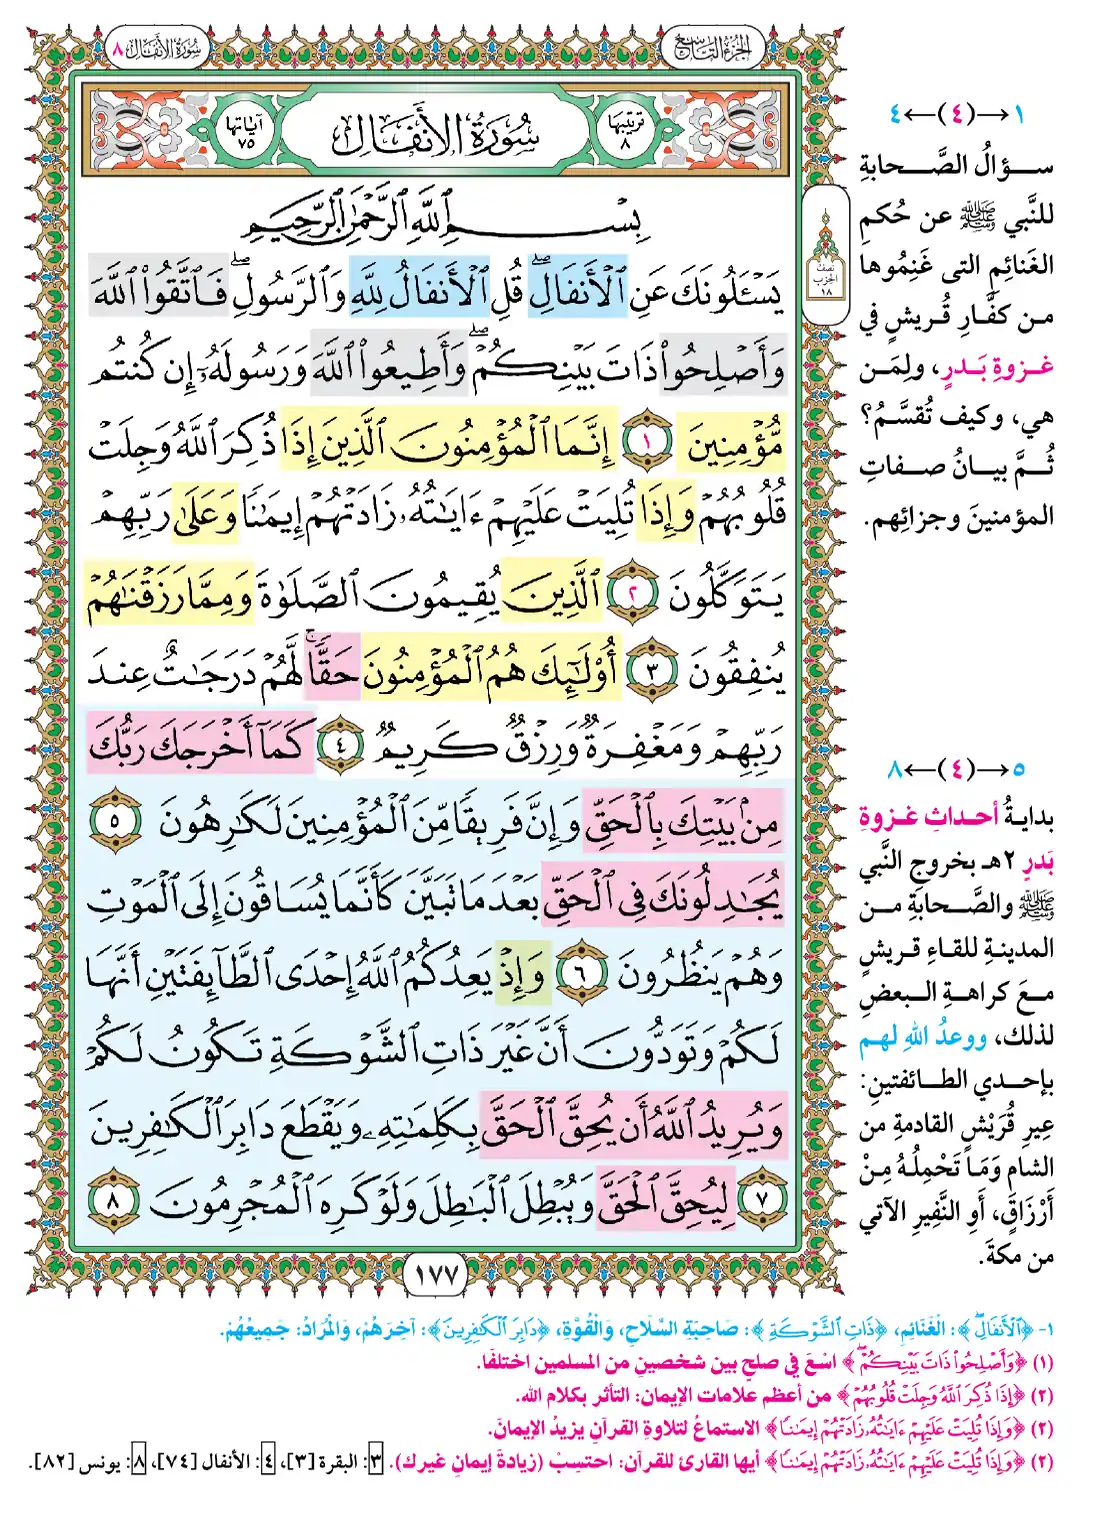 الجزء التاسع
سورة الأنفال ٨
ترتيبها ٨
سُورَةُ الأَنفَالِ
آياتها ٧٥
بِسْمِ ٱللَّهِ ٱلرَّحْمَٰنِ ٱلرَّحِيمِ
يَسْـَٔلُونَكَ عَنِ ٱلْأَنفَالِۖ قُلِ ٱلْأَنفَالُ لِلَّهِ وَٱلرَّسُولِۖ فَٱتَّقُوا۟ ٱللَّهَ
وَأَصْلِحُوا۟ ذَاتَ بَيْنِكُمْۖ وَأَطِيعُوا۟ ٱللَّهَ وَرَسُولَهُۥٓ إِن كُنتُم
مُّؤْمِنِينَ ١ إِنَّمَا ٱلْمُؤْمِنُونَ ٱلَّذِينَ إِذَا ذُكِرَ ٱللَّهُ وَجِلَتْ
قُلُوبُهُمْ وَإِذَا تُلِيَتْ عَلَيْهِمْ ءَايَٰتُهُۥ زَادَتْهُمْ إِيمَٰنًا وَعَلَىٰ رَبِّهِمْ
يَتَوَكَّلُونَ ٢ ٱلَّذِينَ يُقِيمُونَ ٱلصَّلَوٰةَ وَمِمَّا رَزَقْنَٰهُمْ
يُنفِقُونَ ٣ أُو۟لَٰٓئِكَ هُمُ ٱلْمُؤْمِنُونَ حَقًّاۚ لَّهُمْ دَرَجَٰتٌ عِندَ
رَبِّهِمْ وَمَغْفِرَةٌ وَرِزْقٌ كَرِيمٌ ٤ كَمَآ أَخْرَجَكَ رَبُّكَ
مِنۢ بَيْتِكَ بِٱلْحَقِّ وَإِنَّ فَرِيقًا مِّنَ ٱلْمُؤْمِنِينَ لَكَٰرِهُونَ ٥
يُجَٰدِلُونَكَ فِى ٱلْحَقِّ بَعْدَ مَا تَبَيَّنَ كَأَنَّمَا يُسَاقُونَ إِلَى ٱلْمَوْتِ
وَهُمْ يَنظُرُونَ ٦ وَإِذْ يَعِدُكُمُ ٱللَّهُ إِحْدَى ٱلطَّآئِفَتَيْنِ أَنَّهَا
لَكُمْ وَتَوَدُّونَ أَنَّ غَيْرَ ذَاتِ ٱلشَّوْكَةِ تَكُونُ لَكُمْ
وَيُرِيدُ ٱللَّهُ أَن يُحِقَّ ٱلْحَقَّ بِكَلِمَٰتِهِۦ وَيَقْطَعَ دَابِرَ ٱلْكَٰفِرِينَ
٧ لِيُحِقَّ ٱلْحَقَّ وَيُبْطِلَ ٱلْبَٰطِلَ وَلَوْ كَرِهَ ٱلْمُجْرِمُونَ ٨
١٧٧
نصف
الحزب
١٨
١→(٤)←٤
سؤالُ الصَّحابةِ
للنَّبي ﷺ عن حُكمِ
الغَنائِمِ التى غَنِمُوها
من كفَّارِ قُريشٍ في
غزوةِ بَدرٍ، ولِمَن
هي، وكيف تُقسَّمُ؟
ثُمَّ بيانُ صفاتِ
المؤمنينَ وجزائِهم.
٥→(٤)←٨
بدايةُ أحداثِ غزوةِ
بَدرِ ٢هـ بخروجِ النَّبي
ﷺ والصَّحابةِ من
المدينةِ للقاءِ قريشٍ
معَ كراهةِ البعضِ
لذلك، ووعدُ اللهِ لهم
بإحدي الطائفتينِ:
عِيرِ قُرَيْشٍ القادمةِ من
الشام وَمَا تَحْمِلُهُ مِنْ
أَرْزَاقٍ، أَوِ النَّفِيرِ الآتي
من مكةَ.
١- ﴿ٱلْأَنفَالِۖ﴾: الْغَنَائِمِ، ﴿ذَاتِ ٱلشَّوْكَةِ﴾: صَاحِبَةِ السِّلَاحِ، وَالْقُوَّةِ، ﴿دَابِرَ ٱلْكَٰفِرِينَ﴾: آخِرَهُمْ، وَالْمُرَادُ: جَمِيعُهُمْ.
(١) ﴿وَأَصْلِحُوا۟ ذَاتَ بَيْنِكُمْۖ﴾ اسْعَ في صلحٍ بين شخصينِ من المسلمين اختلفَا.
(٢) ﴿إِذَا ذُكِرَ ٱللَّهُ وَجِلَتْ قُلُوبُهُمْ﴾ من أعظم علامات الإيمان: التأثر بكلام الله.
(٢) ﴿وَإِذَا تُلِيَتْ عَلَيْهِمْ ءَايَٰتُهُۥ زَادَتْهُمْ إِيمَٰنًا﴾ الاستماعُ لتلاوةِ القرآنِ يزيدُ الإيمانَ.
(٢) ﴿وَإِذَا تُلِيَتْ عَلَيْهِمْ ءَايَٰتُهُۥ زَادَتْهُمْ إِيمَٰنًا﴾ أيها القارئُ للقرآن: احتسِبْ (زيادةَ إيمانِ غيرِك). ٣: البقرة [٣]، ٤: الأنفال [٧٤]، ٨: يونس [٨٢].